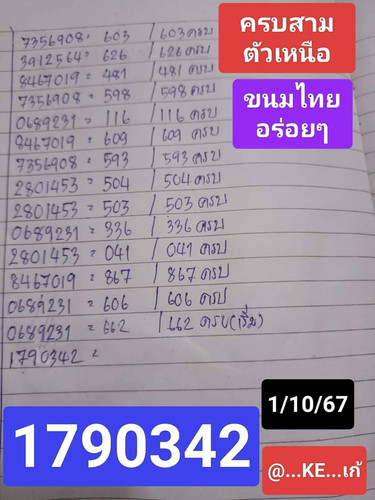 7356908 = 603 / 603 ครบ
3912564 = 626 / 626 ครบ
8467019 = 481 / 481 ครบ
7356908 = 598 / 598 ครบ
0689231 = 116 / 116 ครบ
8467019 = 609 / 609 ครบ
7356908 = 593 / 593 ครบ
2801453 = 504 / 504 ครบ
2801453 = 503 / 503 ครบ
0689231 = 336 / 336 ครบ
2801453 = 041 / 041 ครบ
8467019 = 867 / 867 ครบ
0689231 = 606 / 606 ครบ
0689231 = 662 / 662 ครบ(เริ่ม)
1790342 =
ครบสาม
ตัวเหนือ
ขนมไทย
อร่อยๆ
1/10/67
1790342
@...KE...เก้